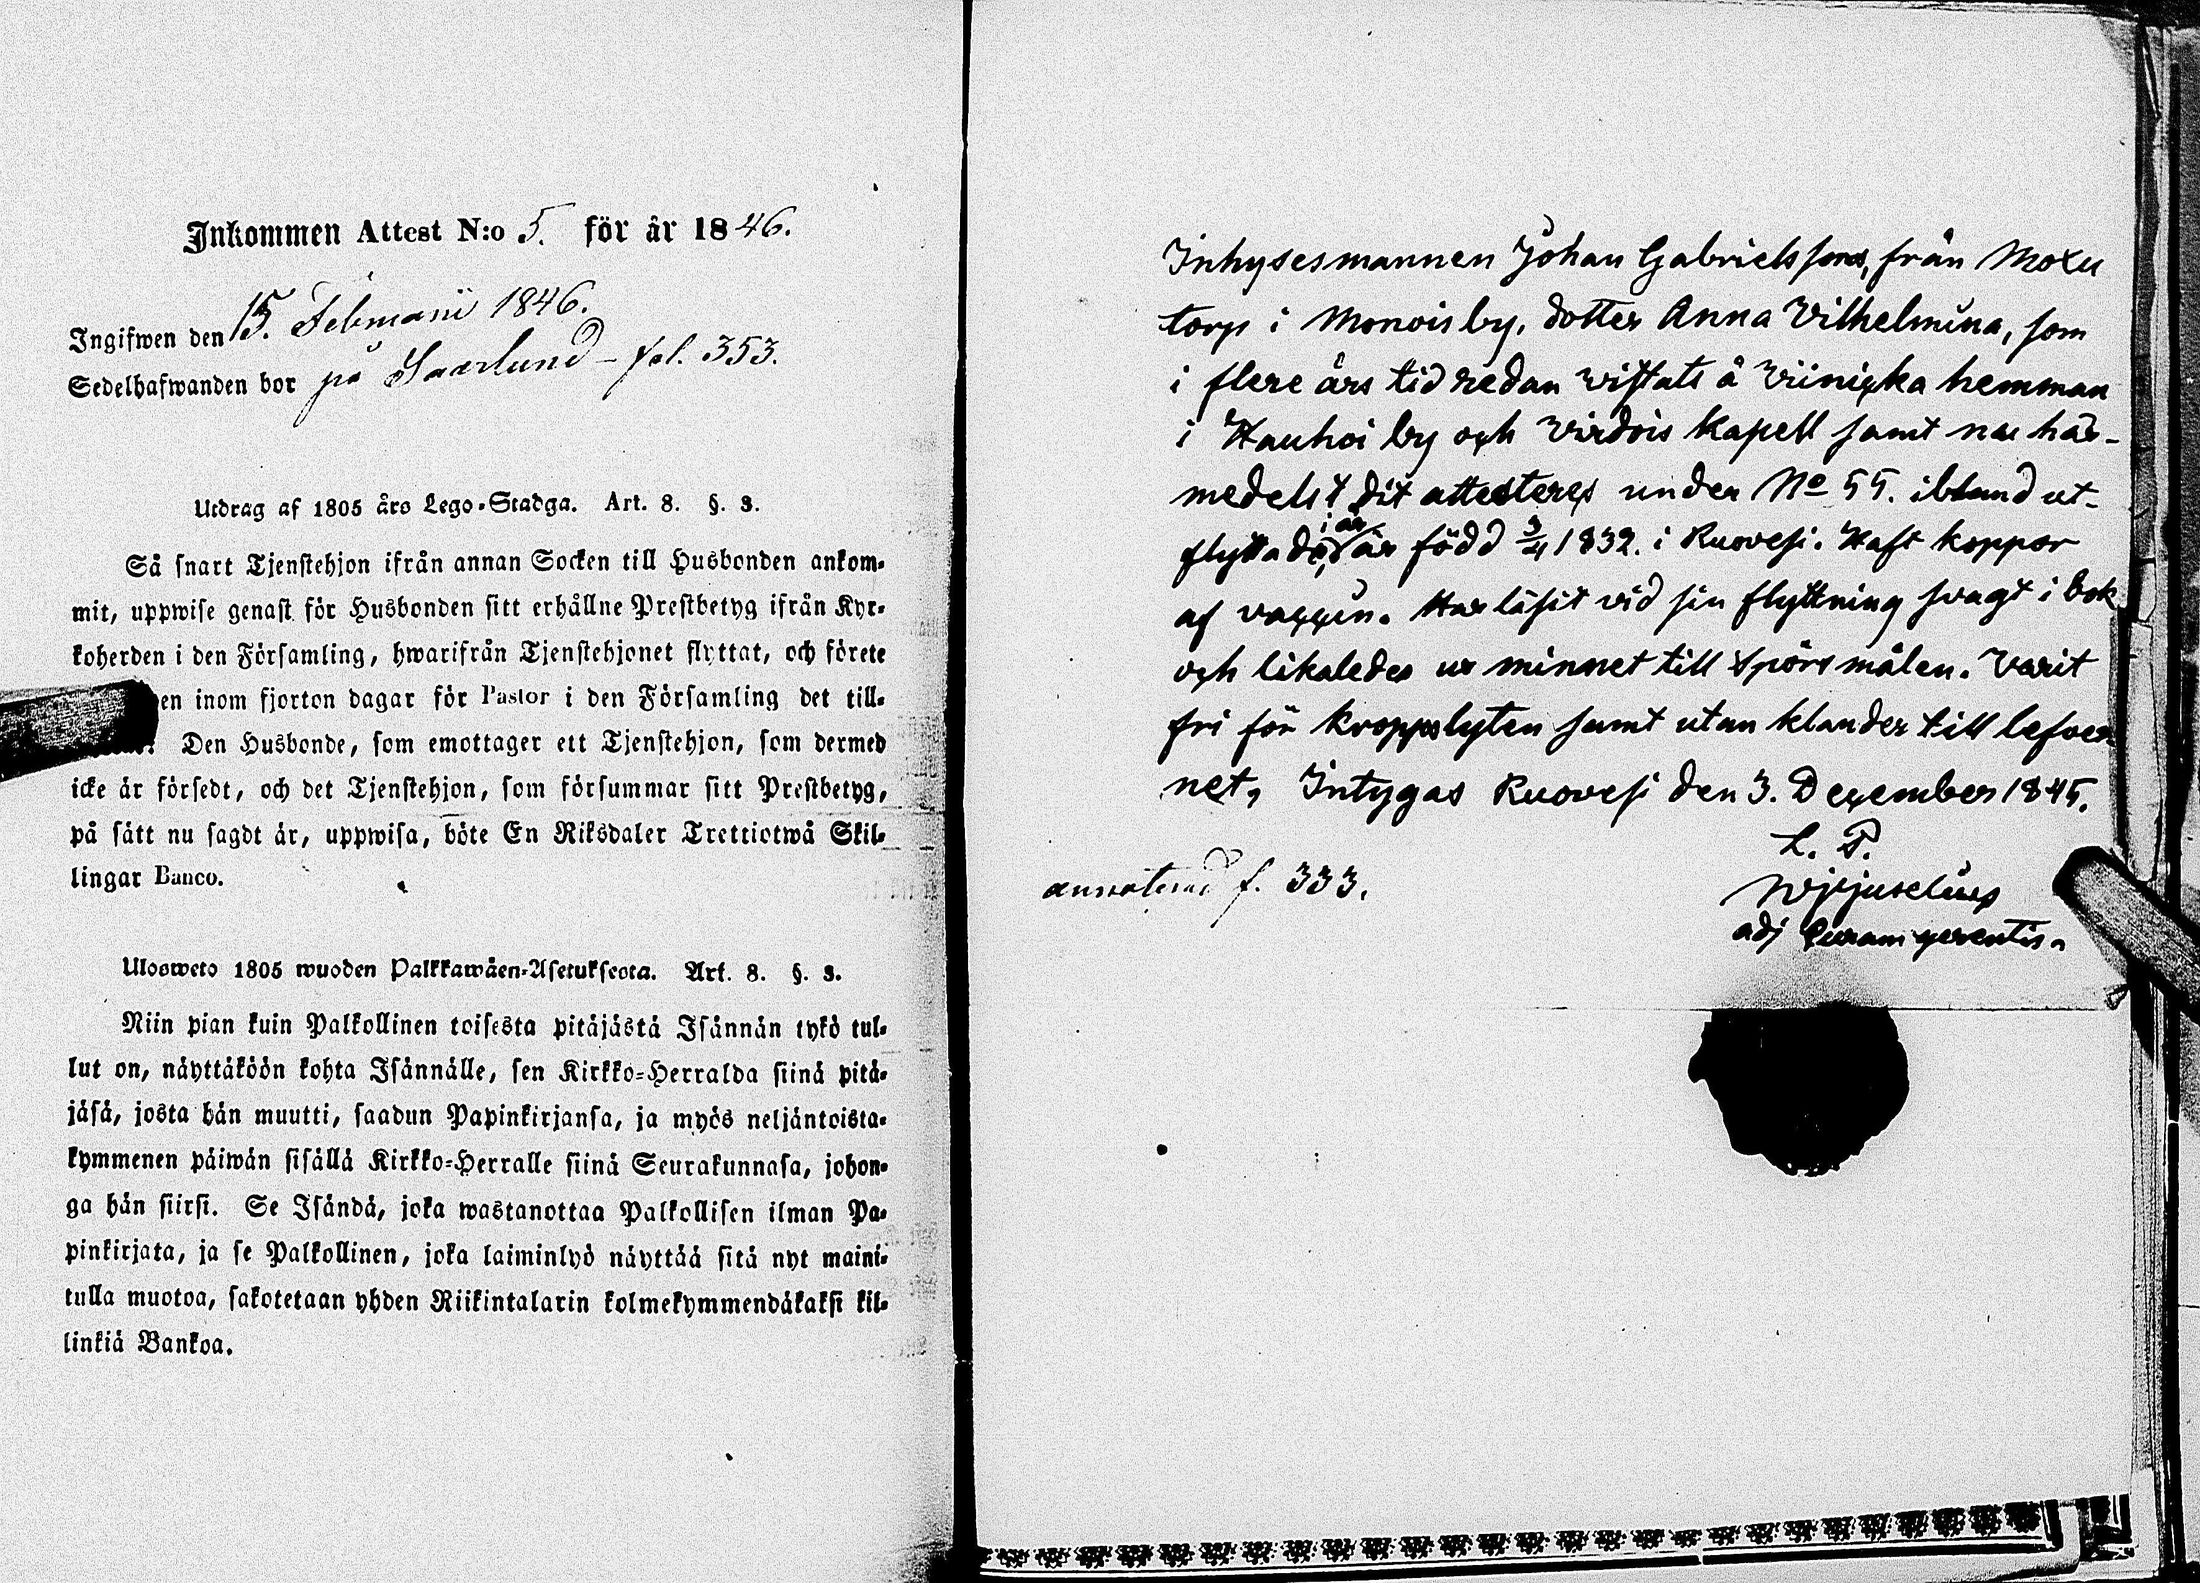 Inkommen Attest N:o 5. för år 1846.
Ingifwen den 15. Februarii 1846.
Sedelhafwanden bor på Saarlund – fol. 353.
Utdrag af 1805 års Lego-Stadga. Art. 8. §. 3.
Så snart Tjenstehjon ifrån annan Socken till Husbonden ankom-
mit, uppwise genast för Husbonden sitt erhållne Prestbetyg ifrån Kyr-
koherden i den Församling, hwarifrån Tjenstehjonet flyttat, och förete
en inom fjorton dagar för Pastor i den Församling det till-
Den Husbonde, som emottager ett Tjenstehjon, som dermed
icke är försedt, och det Tjenstehjon, som försummar sitt Prestbetyg,
på sätt nu sagdt är, uppwisa, böte En Riksdaler Trettiotwå Skil-
lingar Banco.
Ulosweto 1805 wuoden Palkkawäen-Asetuksesta. Art. 8. §. 3.
Niin pian kuin Palkollinen toisesta pitäjästä Isännän tykö tul-
lut on, näyttäköön kohta Isännälle, sen Kirkko-Herralda siinä pitä-
jäsä, josta hän muutti, saadun Papinkirjansa, ja myös neljäntoista-
kymmenen päiwän sisällä Kirkko-Herralle siinä Seurakunnasa, johon-
ga hän siirsi. Se Isändä, joka wastanottaa Palkollisen ilman Pa-
pinkirjata, ja se Palkollinen, joka laiminlyö näyttää sitä nyt maini-
tulla muotoa, sakotetaan yhden Riikintalarin kolmekymmendäkaksi kil-
linkiä Bankoa.
Inhysesmannen Johan Gabrielssons, från Moxu
torp i Monois by, dotter Anna Vilhelmina, som
i flere års tid redan vistats å Viinicka hemman
i Hauhoi by och Virdois kapell samt nu här-
medelst dit attesteres under No 55. ibland ut-
flyttade, i år är född 3/4 1832. i Ruovesi. Haft koppor
af vaccin. Har läsit vid sin flyttning svagt i bok
och likaledes ur minnet till Spörsmålen. Varit
fri för kroppslyten samt utan klander till lefver-
net, Intygas Ruovesi den 3. December 1845.
L. S.
adj Curam gerentis.
annoterad f. 333.